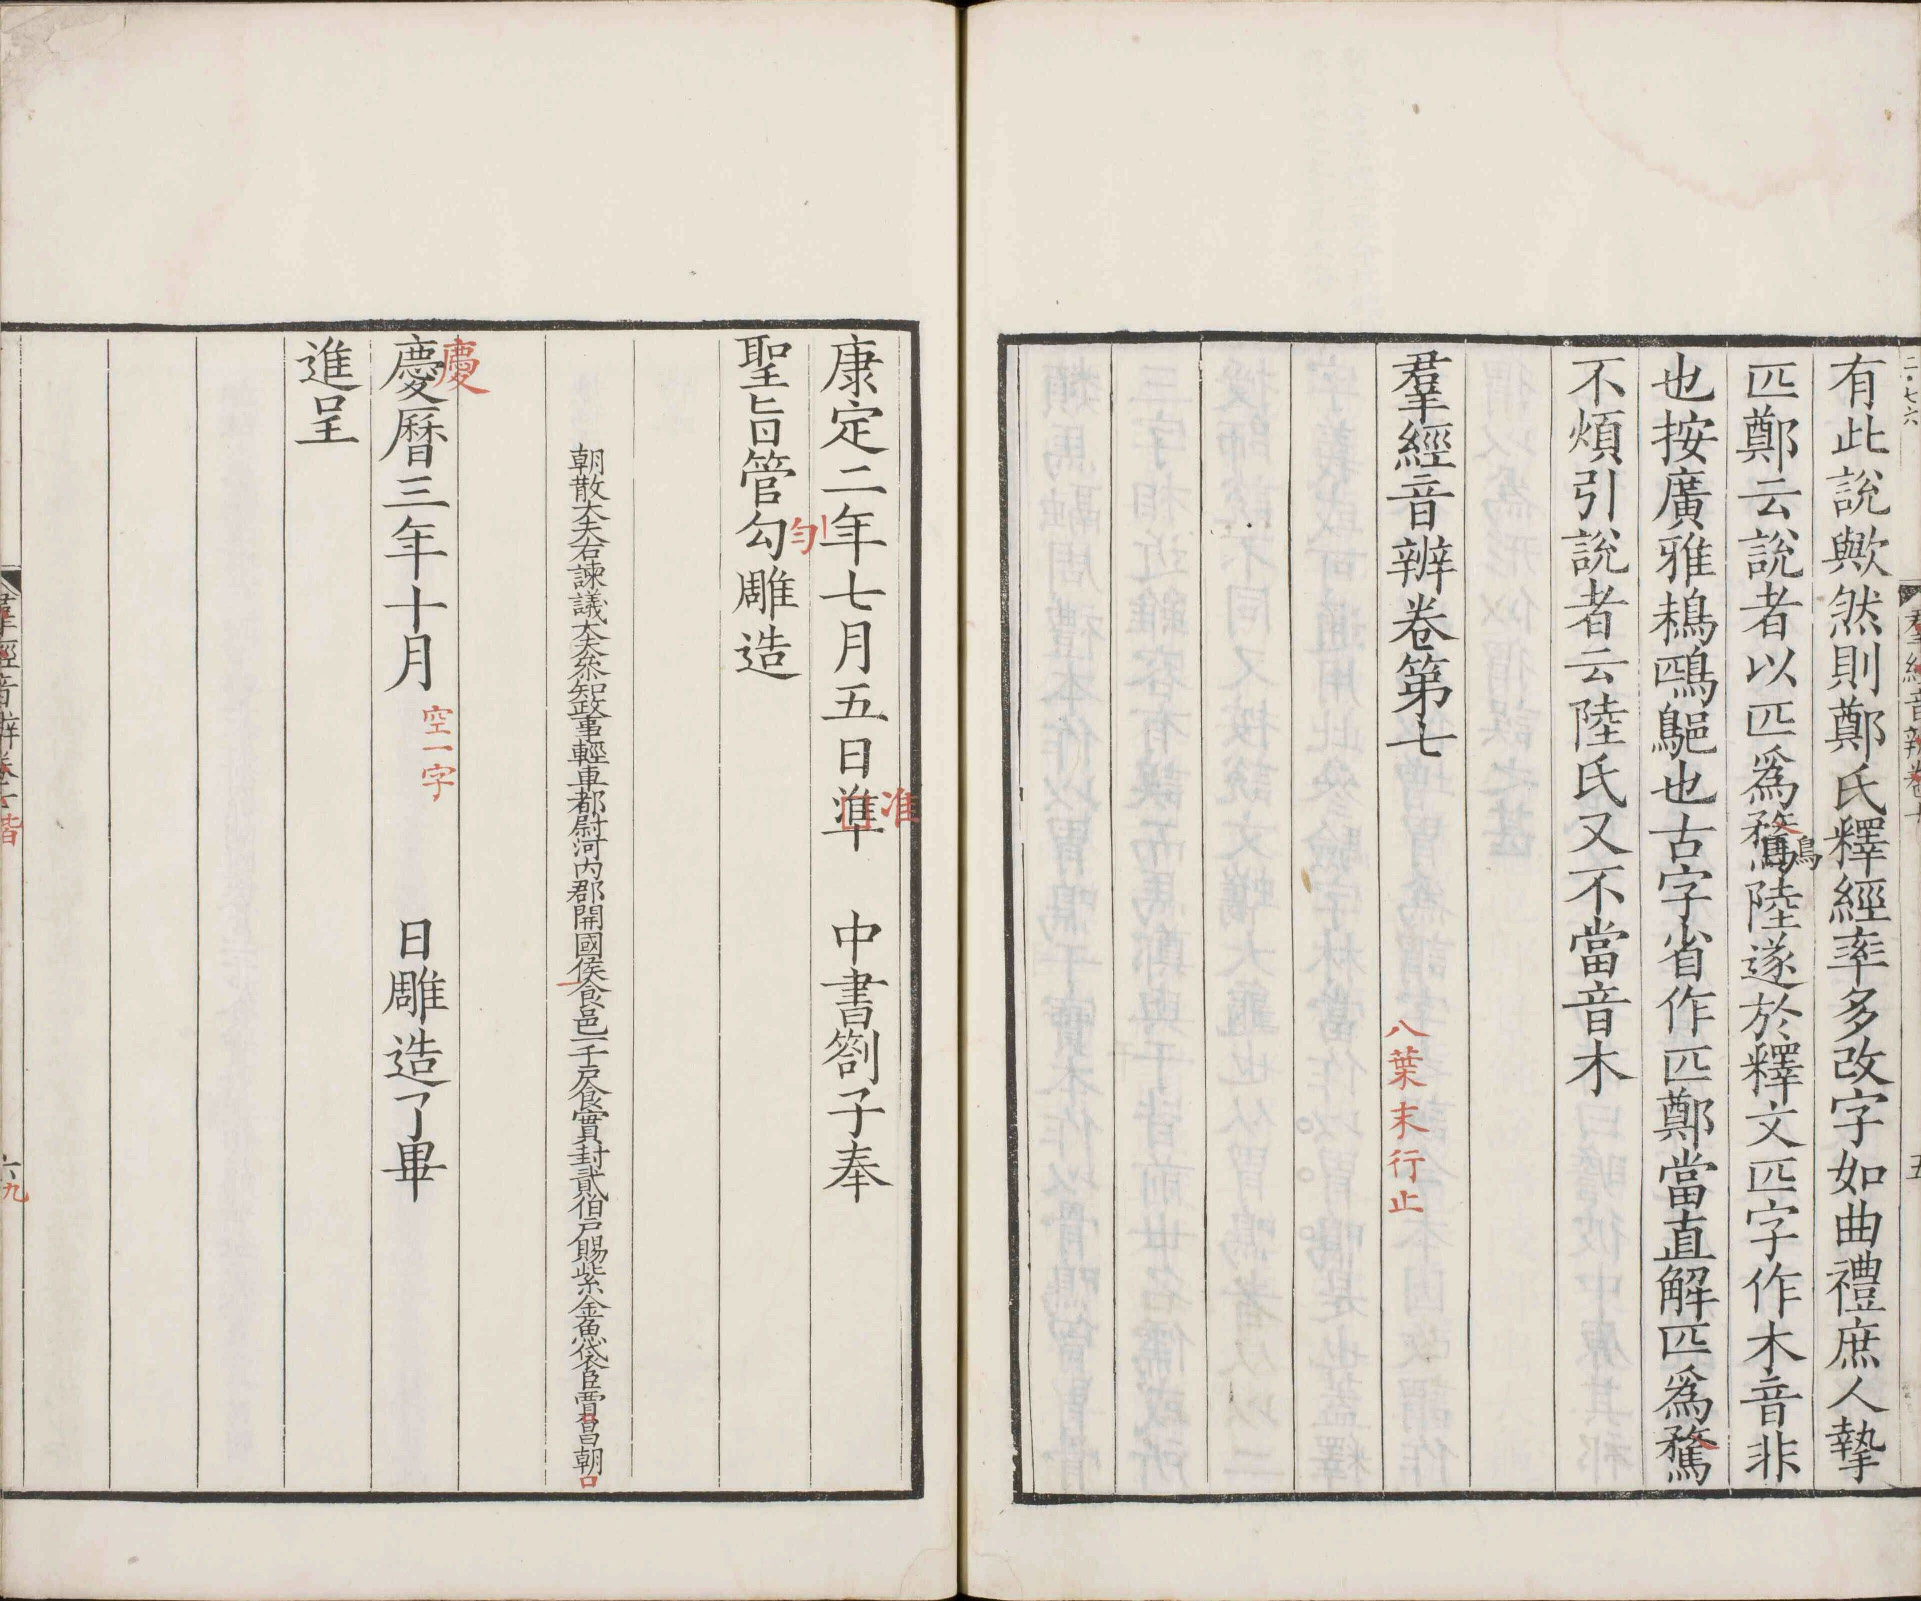 二七六
羣經音辨卷七
五
有此說歟然則鄭氏釋經率多改字如曲禮庶人摯
匹鄭云說者以匹爲鶩陸遂於釋文匹字作木音非
鳥
也按廣雅鴮鴄鶂也古字省作匹鄭當直解匹爲鶩
不煩引說者云陸氏又不當音木
羣經音辨卷第七
八葉末行止
康定二年七月五日準 中書劄子奉
准
聖旨管勾雕造
勻
朝散大夫右諫議大夫叅知政事輕車都尉河內郡開國侯食邑一千戶食實封貳伯戶賜紫金魚袋臣賈昌朝
慶曆三年十月 日雕造了畢
慶
空一字
進呈
羣經音辨卷
皆
六
九